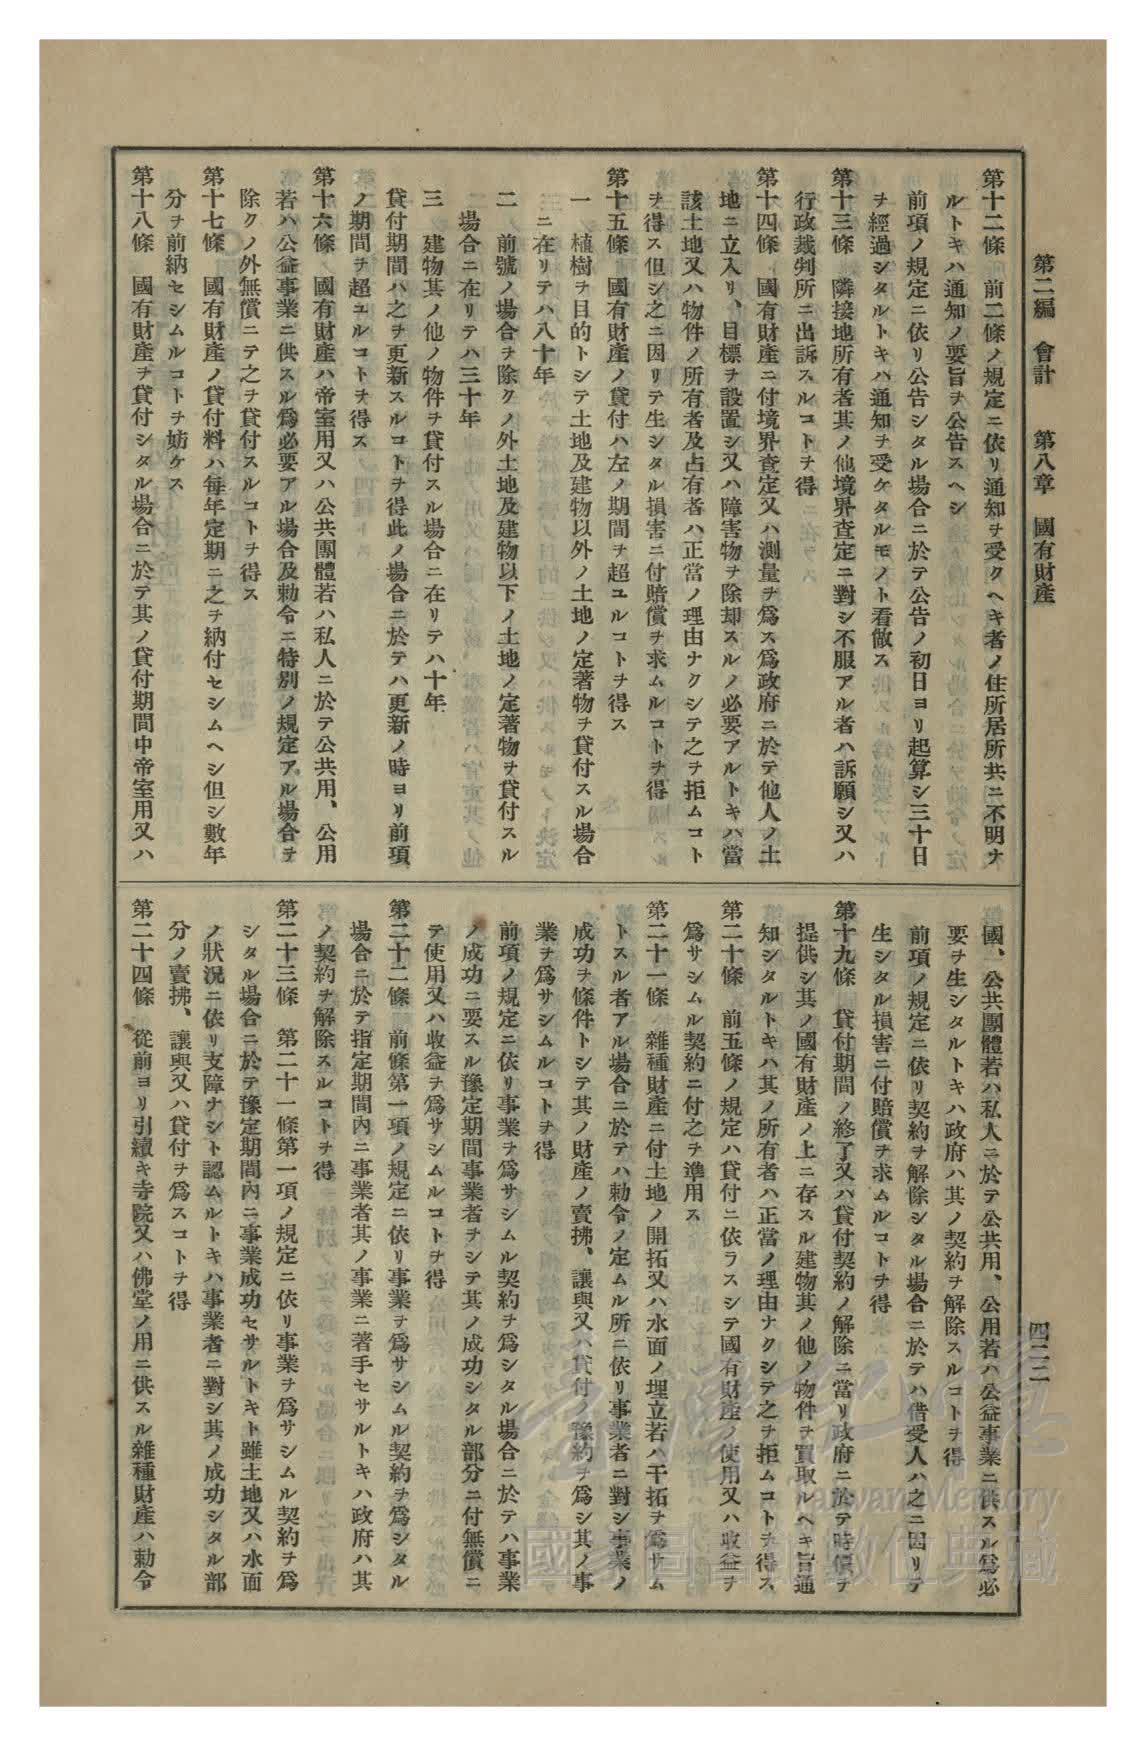 第二編　會計　　第八章　國有財產
四二二
第十二條　前二條ノ規定ニ依リ通知ヲ受クヘキ者ノ住所居所共ニ不明ナ
ルトキハ通知ノ要旨ヲ公告スヘシ
前項ノ規定ニ依リ公告シタル場合ニ於テ公告ノ初日ヨリ起算シ三十日
ヲ經過シタルトキハ通知ヲ受ケタルモノト看做ス
第十三條　隣接地所有者其ノ他境界查定ニ對シ不服アル者ハ訴願シ又ハ
行政裁判所ニ出訴スルコトヲ得
第十四條　國有財產ニ付境界查定又ハ測量ヲ爲ス爲政府ニ於テ他人ノ土
地ニ立入リ、目標ヲ設置シ又ハ障害物ヲ除却スルノ必要アルトキハ當
該土地又ハ物件ノ所有者及占有者ハ正當ノ理由ナクシテ之ヲ拒ムコト
ヲ得ス但シ之ニ因リテ生シタル損害ニ付賠償ヲ求ムルコトヲ得
第十五條　國有財產ノ貸付ハ左ノ期間ヲ超ユルコトヲ得ス
一　植樹ヲ目的トシテ土地及建物以外ノ土地ノ定著物ヲ貸付スル場合
ニ在リテハ八十年
二　前號ノ場合ヲ除クノ外土地及建物以下ノ土地ノ定著物ヲ貸付スル
場合ニ在リテハ三十年
三　建物其ノ他ノ物件ヲ貸付スル場合ニ在リテハ十年
貸付期間ハ之ヲ更新スルコトヲ得此ノ場合ニ於テハ更新ノ時ヨリ前項
ノ期間ヲ超ユルコトヲ得ス
第十六條　國有財產ハ帝室用又ハ公共團體若ハ私人ニ於テ公共用、公用
若ハ公益事業ニ供スル爲必要アル場合及勅令ニ特別ノ規定アル場合ヲ
除クノ外無償ニテ之ヲ貸付スルコトヲ得ス
第十七條　國有財產ノ貸付料ハ每年定期ニ之ヲ納付セシムヘシ但シ數年
分ヲ前納セシムルコトヲ妨ケス
第十八條　國有財產ヲ貸付シタル場合ニ於テ其ノ貸付期間中帝室用又ハ
國、公共團體若ハ私人ニ於テ公共用、公用若ハ公益事業ニ供スル爲必
要ヲ生シタルトキハ政府ハ其ノ契約ヲ解除スルコトヲ得
前項ノ規定ニ依リ契約ヲ解除シタル場合ニ於テハ借受人ハ之ニ因リテ
生シタル損害ニ付賠償ヲ求ムルコトヲ得
第十九條　貸付期間ノ終了又ハ貸付契約ノ解除ニ當リ政府ニ於テ時價ヲ
提供シ其ノ國有財產ノ上ニ存スル建物其ノ他ノ物件ヲ買取ルヘキ旨通
知シタルトキハ其ノ所有者ハ正當ノ理由ナクシテ之ヲ拒ムコトヲ得ス
第二十條　前五條ノ規定ハ貸付ニ依ラスシテ國有財產ノ使用又ハ收益ヲ
爲サシムル契約ニ付之ヲ準用ス
第二十一條　雜種財產ニ付土地ノ開拓又ハ水面ノ埋立若ハ干拓ヲ爲サム
トスル者アル場合ニ於テハ勅令ノ定ムル所ニ依リ事業者ニ對シ事業ノ
成功ヲ條件トシテ其ノ財產ノ賣拂、讓與又ハ貸付ノ豫約ヲ爲シ其ノ事
業ヲ爲サシムルコトヲ得
前項ノ規定ニ依リ事業ヲ爲サシムル契約ヲ爲シタル場合ニ於テハ事業
ノ成功ニ要スル豫定期間事業者ヲシテ其ノ成功シタル部分ニ付無償ニ
テ使用又ハ收益ヲ爲サシムルコトヲ得
第二十二條　前條第一項ノ規定ニ依リ事業ヲ爲サシムル契約ヲ爲シタル
場合ニ於テ指定期間內ニ事業者其ノ事業ニ著手セサルトキハ政府ハ其
ノ契約ヲ解除スルコトヲ得
第二十三條　第二十一條第一項ノ規定ニ依リ事業ヲ爲サシムル契約ヲ爲
シタル場合ニ於テ豫定期間內ニ事業成功セサルトキト雖土地又ハ水面
ノ狀況ニ依リ支障ナシト認ムルトキハ事業者ニ對シ其ノ成功シタル部
分ノ賣拂、讓與又ハ貸付ヲ爲スコトヲ得
第二十四條　從前ヨリ引續キ寺院又ハ佛堂ノ用ニ供スル雜種財產ハ勅令
臺灣記憶
Taiwan Memory
國家圖書館數位典藏